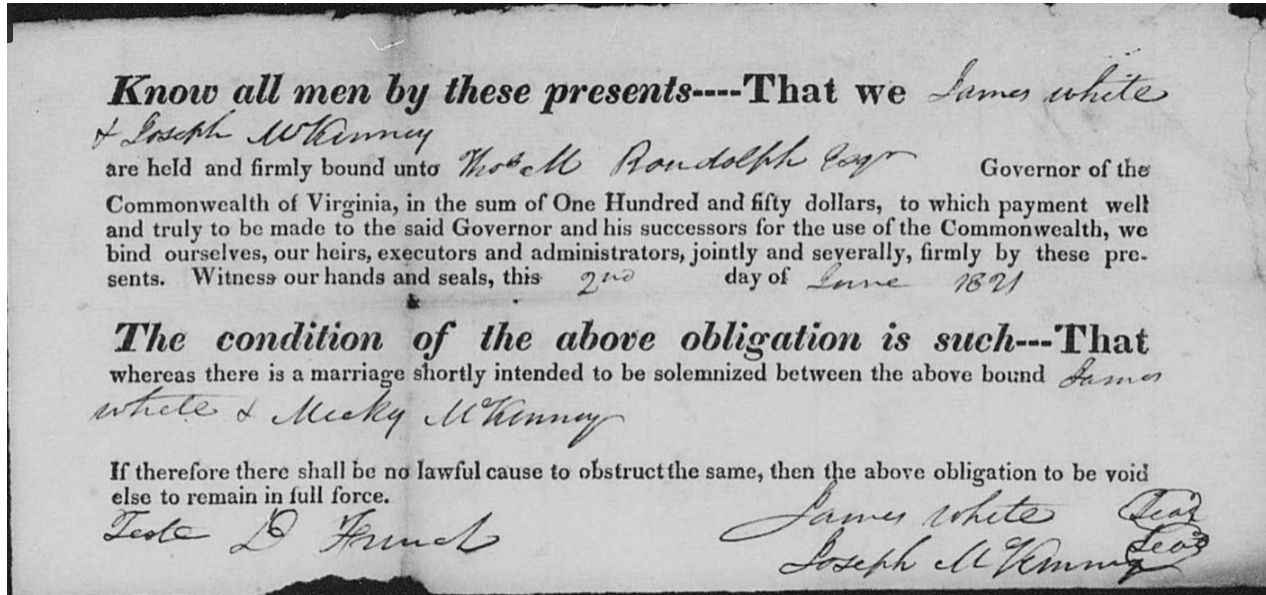 Know all men by these presents----That we James white
& Joseph McKinney
are held and firmly bound unto Thos M Randolph Esqr Governor of the
Commonwealth of Virginia, in the sum of One Hundred and fifty dollars, to which payment well
and truly to be made to the said Governor and his successors for the use of the Commonwealth, we
bind ourselves, our heirs, executors and administrators, jointly and severally, firmly by these pre-
sents. Witness our hands and seals, this 2nd day of June 1821
The condition of the above obligation is such---That
whereas there is a marriage shortly intended to be solemnized between the above bound James
white & McKinney
If therefore there shall be no lawful cause to obstruct the same, then the above obligation to be void
else to remain in full force.
Teste D French
James white Seal
Joseph McKinney Seal